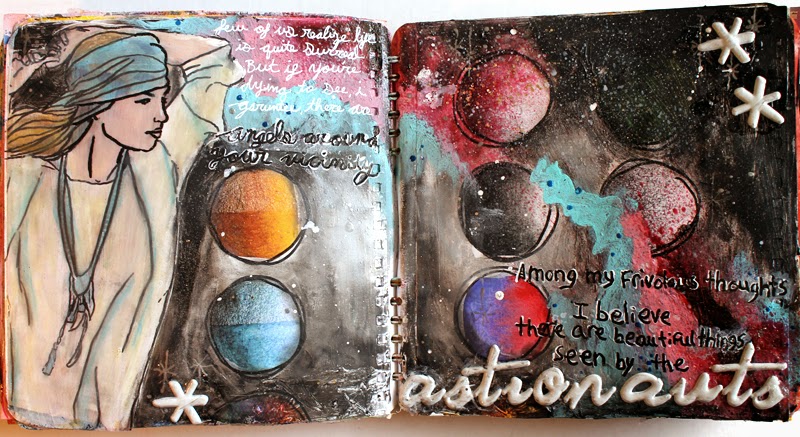 few of us realize life
is quite surreal
But if you're
dying to see, i
garuntee there are
angels around
your vicinity
Among my Frivolous thoughts
I believe
there are beautiful things
seen by the
astronauts